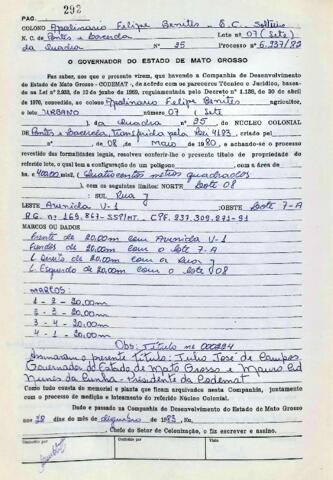 PAG. 292
COLONO Apolinario Felipe Benites - E.C. Solteiro
N. C. de Pontes e Lacerda Lote nº 07 (Sete)
da Quadra Nº 25 Processo nº 6.237/82
O GOVERNADOR DO ESTADO DE MATO GROSSO
Faz saber, aos que o presente virem, que havendo a Companhia de Desenvolvimento
do Estado de Mato Grosso - CODEMAT -, de acôrdo com os pareceres Técnico e Jurídico, basea-
da na Lei nº 2.883, de 12 de junho de 1969, regulamentado pelo Decreto nº 1.138, de 30 de abril
de 1970, concedido, ao colono Apolinario Felipe Benites agricultor,
o lote "URBANO" número 07 (Sete)
da Quadra nº 25 do NÚCLEO COLONIAL
de Pontes e Lacerda, transferida pela Lei 4183, criado pel
nº , de 08 de Maio de 1980, e achando-se o processo
revestido das formalidades legais, resolveu conferir-lhe o presente título de propriedade do
referido lote, o qual tem a configuração de um polígono com a área de
Ha. 400,00 m² (Quatrocentos metros quadrados
), com os seguintes limites: NORTE Lote 08
: SUL Rua J
LESTE Avenida V-1 : OESTE Lote 7-A
R.G. nº 169.867-SSP/MT - CPF. 237.309.271-91
MARCOS OU DADOS
Frente de 20,00m com Avenida V-1
Fundos de 20,00m com o Lote 7-A
L. Direito de 20,00m com a Rua J
L. Esquerdo de 20,00m com o Lote 08
MARCOS:
1 - 2 - 20,00m
2 - 3 - 20,00m
3 - 4 - 20,00m
4 - 1 - 20,00m
Obs: Título nº 000224
Assinaram o presente título: Julio José de Campos.
Governador do Estado de Mato Grosso e Mauro Cid
Nunes da Cunha - Presidente da Codemat
Como tudo consta do memorial e planta que ficam arquivados nesta Companhia, juntamente
com o processo de medição e loteamento do referido Núcleo Colonial.
Dado e passado na Companhia de Desenvolvimento do Estado de Mato Grosso
aos 28 dias do mês de dezembro de 1983. Eu,
, Chefe do Setor de Colonização, o fiz escrever e assino.
Conferido por
Conferido por
Conferido por